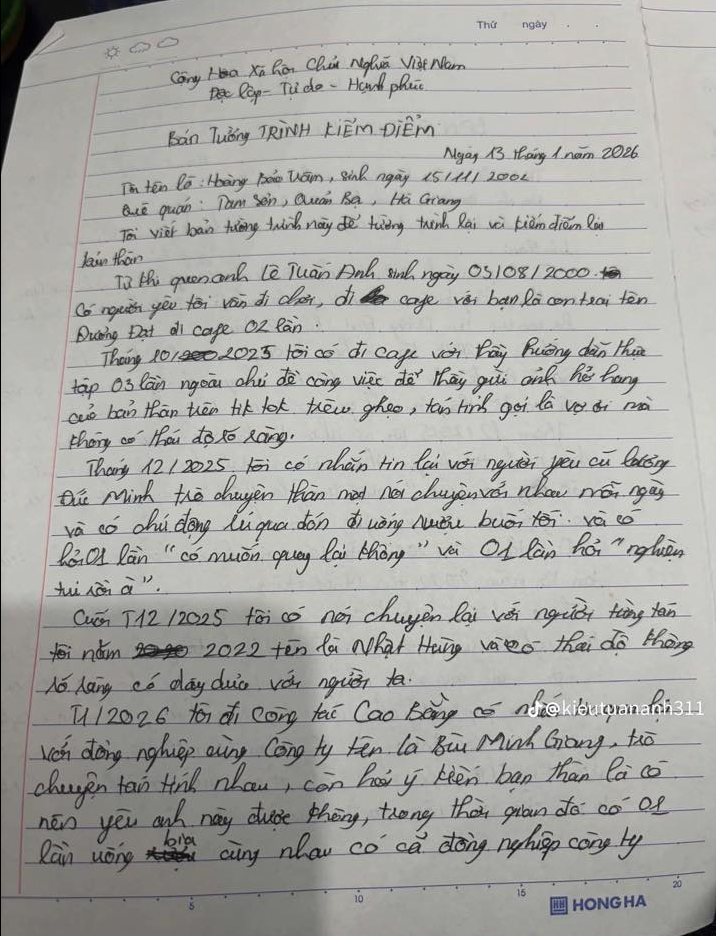 Thứ ngày
Cộng Hòa Xã hội Chủ Nghĩa Việt Nam
Độc lập - Tự do - Hạnh phúc
Bản Tường TRÌNH KIỂM ĐIỂM
Ngày 13 tháng 1 năm 2026
Tôi tên là: Hoàng Bảo Trâm, sinh ngày 15/11/2002
Quê quán: Tam Sơn, Quản Bạ, Hà Giang
Tôi viết bản tường trình này để tường trình lại và kiểm điểm lại
bản thân
Từ khi quen anh Lê Tuấn Anh sinh ngày 05/08/2000.
Có người yêu tôi vẫn đi chơi, đi cafe với bạn là con trai tên
Dương Đạt đi cafe 02 lần.
Tháng 10/2025 tôi có đi cafe với thầy hướng dẫn thực
tập 03 lần ngoài chủ đề công việc để thầy gửi ảnh hở hang
của bản thân trên tik tok trêu ghẹo, tán tỉnh gọi là vợ ơi mà
không có thái độ rõ ràng.
Tháng 12/2025 tôi có nhắn tin lại với người yêu cũ
Đức Minh trò chuyện thân mật nói chuyện với nhau mỗi ngày
và có chủ động qua đón đi uống buổi tối. và có
hỏi 01 lần "có muốn quay lại không" và 01 lần hỏi "nghiện
tui rồi à".
Cuối T12/2025 tôi có nói chuyện lại với người từng tán
tôi năm 2022 tên là Nhật Hưng và có thái độ không
rõ ràng có dây dưa với người ta.
T1/2026 tôi đi công tác Cao Bằng có
@kieutuananh311
với đồng nghiệp cùng Công ty tên là Bùi Minh Giang, trò
chuyện tán tỉnh nhau, còn hỏi ý kiến bạn thân là có
nên yêu anh này được không, trong thời gian đó có 01
lần uống bia cùng nhau có cả đồng nghiệp công ty
5 10 15 20
HH HONG HA